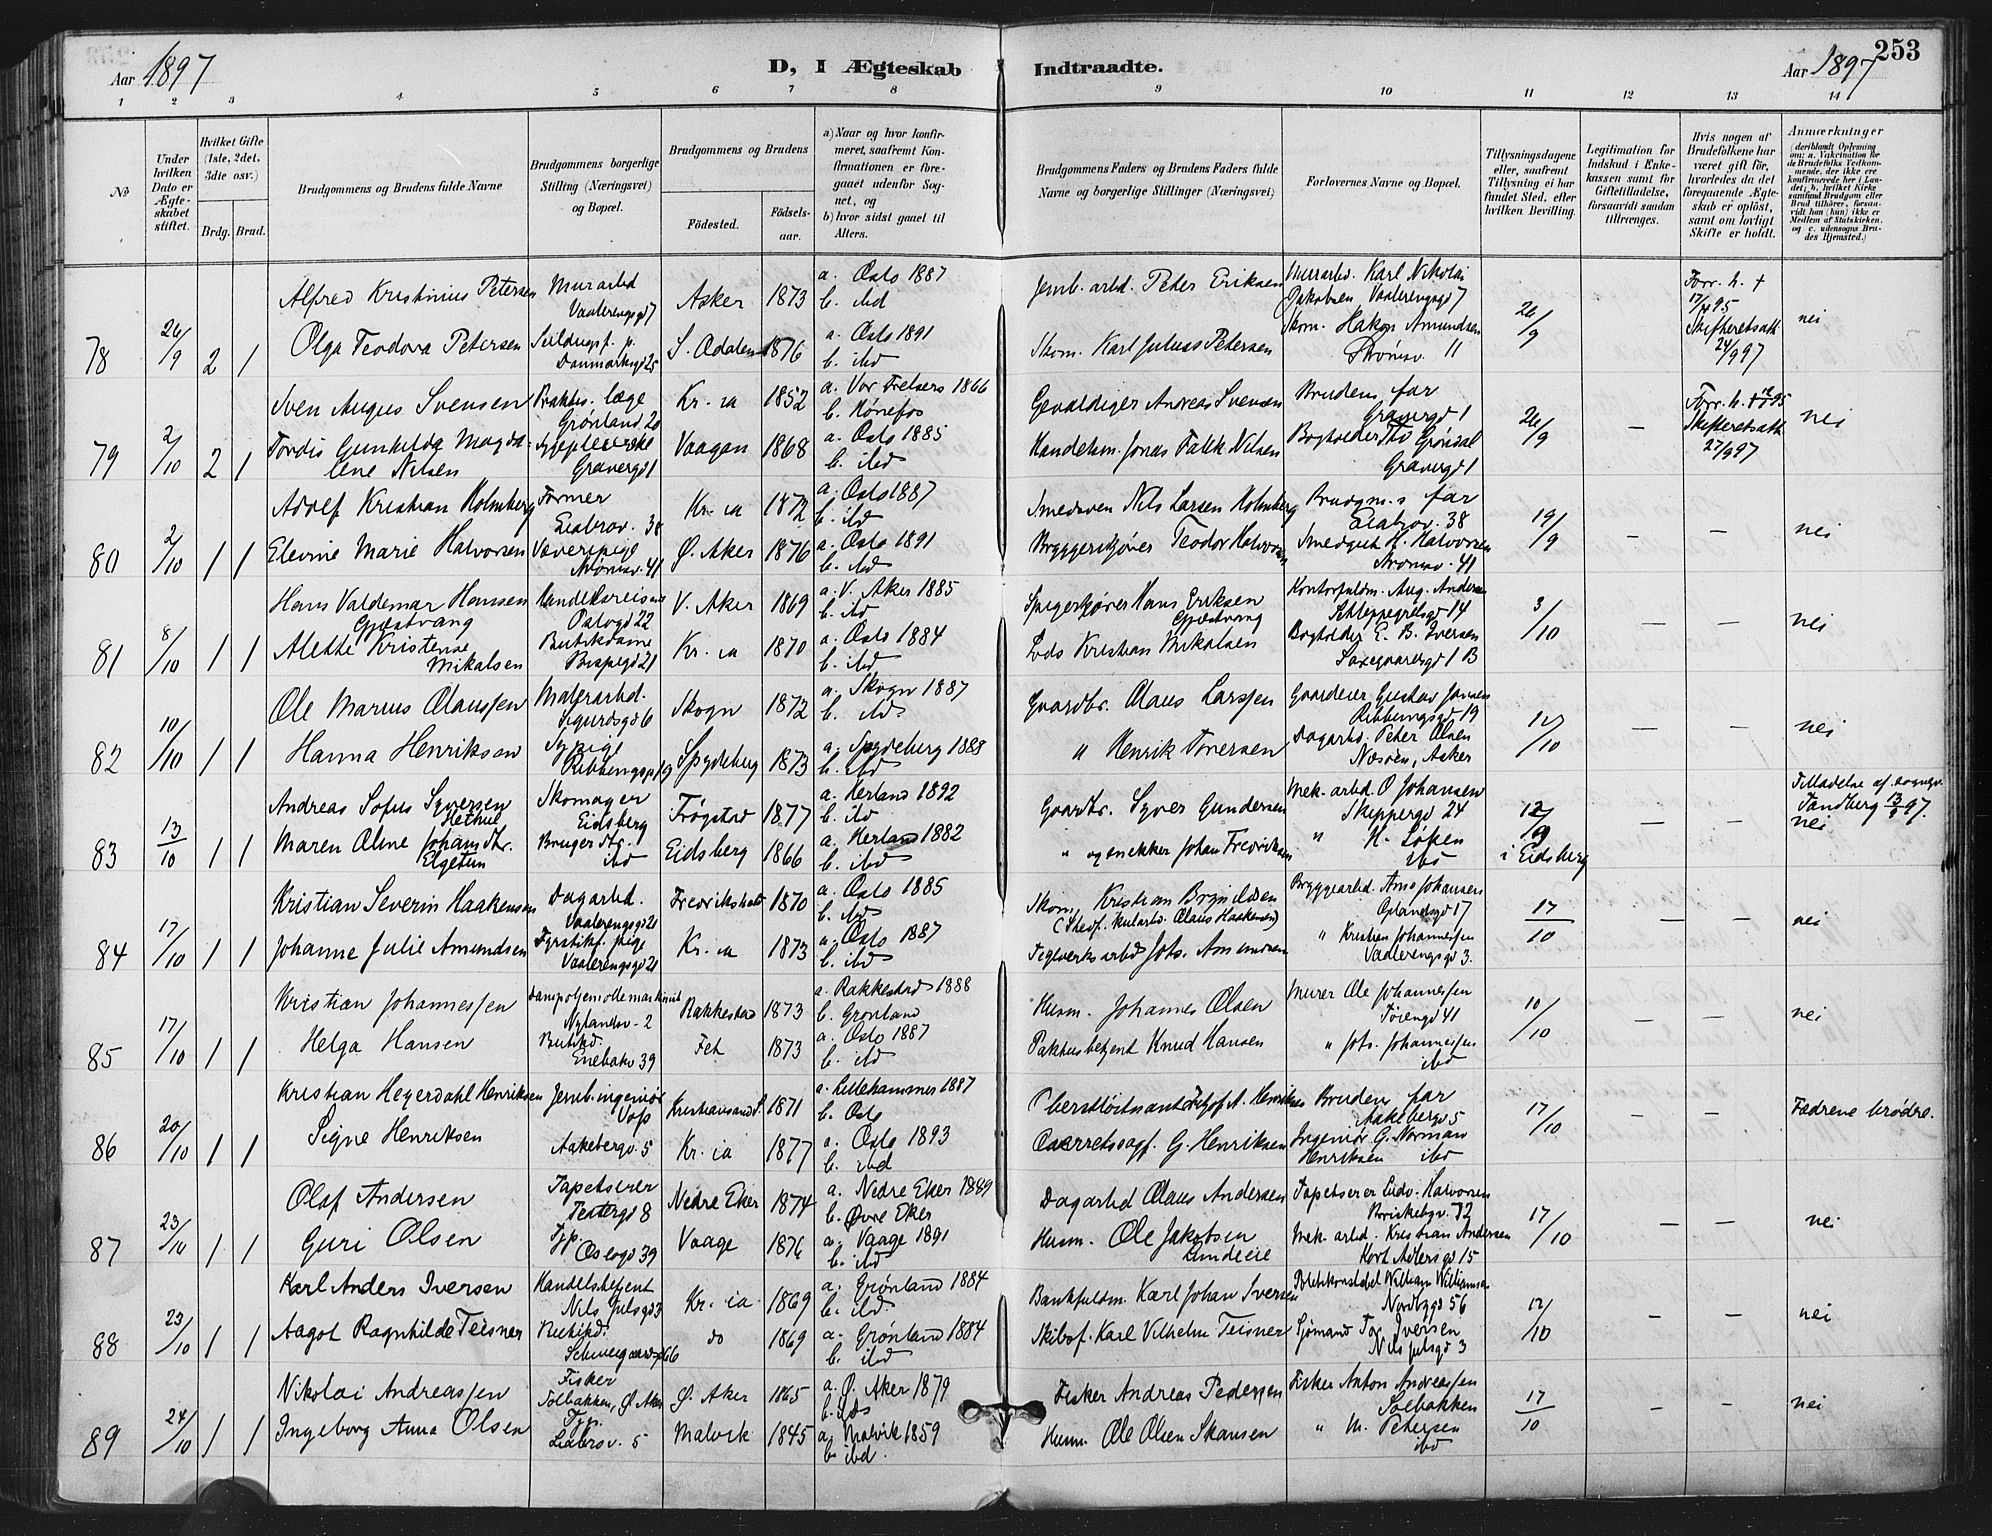 253
Aar 1897
D, I Ægteskab Indtraadte.
Aar 1897
1 2 3 4 5 6 7 8 9 10 11 12 13 14
No
Under hvilken Dato er Ægteskabet stiftet.
Hvilket Gifte (1ste, 2det, 3die osv.)
Brdg. Brud.
Brudgommens og Brudens fulde Navne
Brudgommens borgerlige Stilling (Næringsvei) og Bopæl.
Brudgommens og Brudens
Fødested.
Fødselsaar.
a) Naar og hvor konfirmeret, saafremt Konfirmationen er foregaaet udenfor Sognet, og
b) hvor sidst gaaet til Alters.
Brudgommens Faders og Brudens Faders fulde Navne og borgerlige Stillinger (Næringsvei)
Forlovernes Navne og Bopæl.
Tillysningsdagene eller, saafremt Tillysning ei har fundet Sted, efter hvilken Bevilling.
Legitimation for Indskud i Enkekassen samt for Giftetilladelse, forsaavidt saadan tiltrænges.
Hvis nogen af Brudefolkene har været gift før, hvorledes da det foregaaende Ægteskab er opløst, samt om lovligt Skifte er holdt.
Anmærkninger (deriblandt Oplysning om: a. Vakcination for de Brudefolks Vedkommende, der ikke ere konfirmerede her i Landet; b. hvilket Kirkesamfund Brudgom eller Brud tilhører, forsaavidt han (hun) ikke er Medlem af Statskirken, og c. udensogns Brudes Hjemsted.)
78 26/9 2 1
Alfred Kristinius Petersen Murarbd Vaalerengsgd 7 Asker 1873 a. Oslo 1887 b. ibd Jernb. arbd. Peder Eriksen Murarbd. Karl Nikolai Jakobsen Vaalerengsgd 7 26/9 Forr. h. † 17/4 95 Skifteretsatt 24/9 97 nei
Olga Teodora Petersen Danmarksgd 25 S. Odalen 1876 a. Oslo 1891 b. ibd Skom. Karl Julius Petersen Skom. Hakon Amundsen Strømsv. 11
79 2/10 2 1
Sven Augus Svensen Praktis. læge Grønland 20 Kr.ia 1852 a. Vor Frelsers 1866 b. Hønefos Gevaldiger Andreas Svensen Brudens far Gravergd 1 26/9 — Skifteretsatt 27/9 97 nei
Tordis Gunhilda Magdalene Nilsen Sygepleierske Gravergd 1 Vaagan 1868 a. Oslo 1885 b. ibd Handelsm. Jonas Falck Nilsen Bogholder Th. Grøndal Gravergd 1
80 2/10 1 1
Adolf Kristian Holmberg Former Eiabrov. 38 Kr.ia 1872 a. Oslo 1887 b. ibd Smedsven Nils Larsen Holmberg Brudgm.s far Eiabrov. 38 19/9 — — nei
Elevine Marie Halvorsen Væverpige Strømsv. 41 Ø. Aker 1876 a. Oslo 1891 b. ibd Bryggerikjører Teodor Halvorsen Smedgut H. Halvorsen Strømsv. 41
81 8/10 1 1
Hans Valdemar Hansen Gjæstvang Handelsreisende 22 V. Aker 1869 a. V. Aker 1885 b. ibd Spigerkjører Hans Eriksen Gjæstvang Kontorfuldm. Aug. Andersen Schleppegrelsgd 14 3/10 — — nei
Alette Kristense Mikalsen Butikdame Bispegd 21 Kr.ia 1870 a. Oslo 1884 b. ibd Lods Kristian Mikalsen Bogholder E. B. Iversen Saxegaardsgd 1 B
82 10/10 1 1
Ole Marius Olaussen Malerarbd. Sigurdsgd 6 Skogn 1872 a. Skogn 1887 b. ibd. Gaardbr. Olaus Larssen Gaardeier Gustav Jonsen Ribbungsgd 19 12/10 — — nei
Hanna Henriksen Sypige Ribbungsgd 19 Spydeberg 1873 a. Spydeberg 1888 b. ibd " Henrik Tonersen Dagarbd. Peter Olsen Næsøen, Asker
83 13/10 1 1
Andreas Sofus Syversen Skomager Eidsberg Trøgstad 1877 a. Herland 1892 b. ibd Gaardbr. Syver Gundersen Mek. arbd. O Johansen Skippergd 24 12/9 i Eidsberg — — Tilladelse af sogneprest Tandberg 13/9 97. nei
Maren Oline Johansdtr. Elgetun ibd Eidsberg 1866 a. Herland 1882 b. ibd " og snekker Johan Fredriksen " H. Løken ibd
84 17/10 1 1
Kristian Severin Haakensen Dagarbd. Vaalerengsgd 21 Fredrikshald 1870 a. Oslo 1885 b. ibd Skom. Kristian Brynildsen (Stedf. Olaus Haakensen) Bryggearbd. Arne Johansen Oplandsgd 17 17/10 — — nei
Johanne Julie Amundsen Fyrstikf. pige Vaalerengsgd 21 Kr.ia 1873 a. Oslo 1887 b. ibd Teglverksarbd Johs. Amundsen " Kristian Johannessen Vaalerengsgd 3.
85 17/10 1 1
Kristian Johannessen Dampoljemøllemaskinist Nylandsv. 2 Rakkestad 1873 a. Rakkestad 1888 b. Grønland Husm. Johannes Olsen Murer Ole Johannessen Tøiengd 41 10/10 — — nei
Helga Hansen Butikd. Enebakv 39 Fet 1873 a. Oslo 1887 b. ibd Pakhusbetjent Knud Hansen " Johs. Johannessen ibd
86 20/10 1 1
Kristian Heyerdahl Henriksen Jernb. ingeniør Voss Kristiansand S. 1871 a. Lillehammer 1887 b. Oslo Oberstløitnant Henriksen Brudens far Aakebergv 5 17/10 — — Fædrene brødre.
Signe Henriksen Aakebergv. 5 Kr.ia 1877 a. Oslo 1893 b. ibd Overretssagf. G. Henriksen Ingeniør G. Norman Henriksen ibd
87 23/10 1 1
Olaf Andersen Tapetserer Teatergd 8 Nedre Eker 1874 a. Nedre Eker 1889 b. Øvre Eker Dagarbd Olaus Andersen Tapetserer Ludv. Halvorsen Briskebyv. 72 17/10 — — nei
Guri Olsen Tjp. Oslogd 39 Vaage 1876 a. Vaage 1891 b. ibd Husm. Ole Jakobsen Lindeeie Mek. arbd. Kristian Andersen Kort Adlersgd 15
88 23/10 1 1
Karl Anders Iversen Handelsbetjent Nils Julsgd 3 Kr.ia 1869 a. Grønland 1884 b. ibd. Bankfuldm. Karl Johan Iversen Politikonstabel William Williamsen Nordbygd 56 12/10 — — nei
Aagot Ragnhilde Teisner Butikd. Schweigaardsgd 66 do 1869 a. Grønland 1884 b. ibd Skibsf. Karl Vilhelm Teisner Sjømand Tor Iversen Nils Julsgd 3
89 24/10 1 1
Nikolai Andreassen Fisker Solbakken, Ø. Aker Ø. Aker 1865 a. Ø. Aker 1879 b. ibd Fisker Andreas Pedersen Fisker Anton Andreassen Solbakken 17/10 — — nei
Ingeborg Anna Olsen Tjp. 5 Malvik 1845 a. Malvik 1859 b. ibd. Husm. Ole Olsen Skansen " M. Petersen ibd